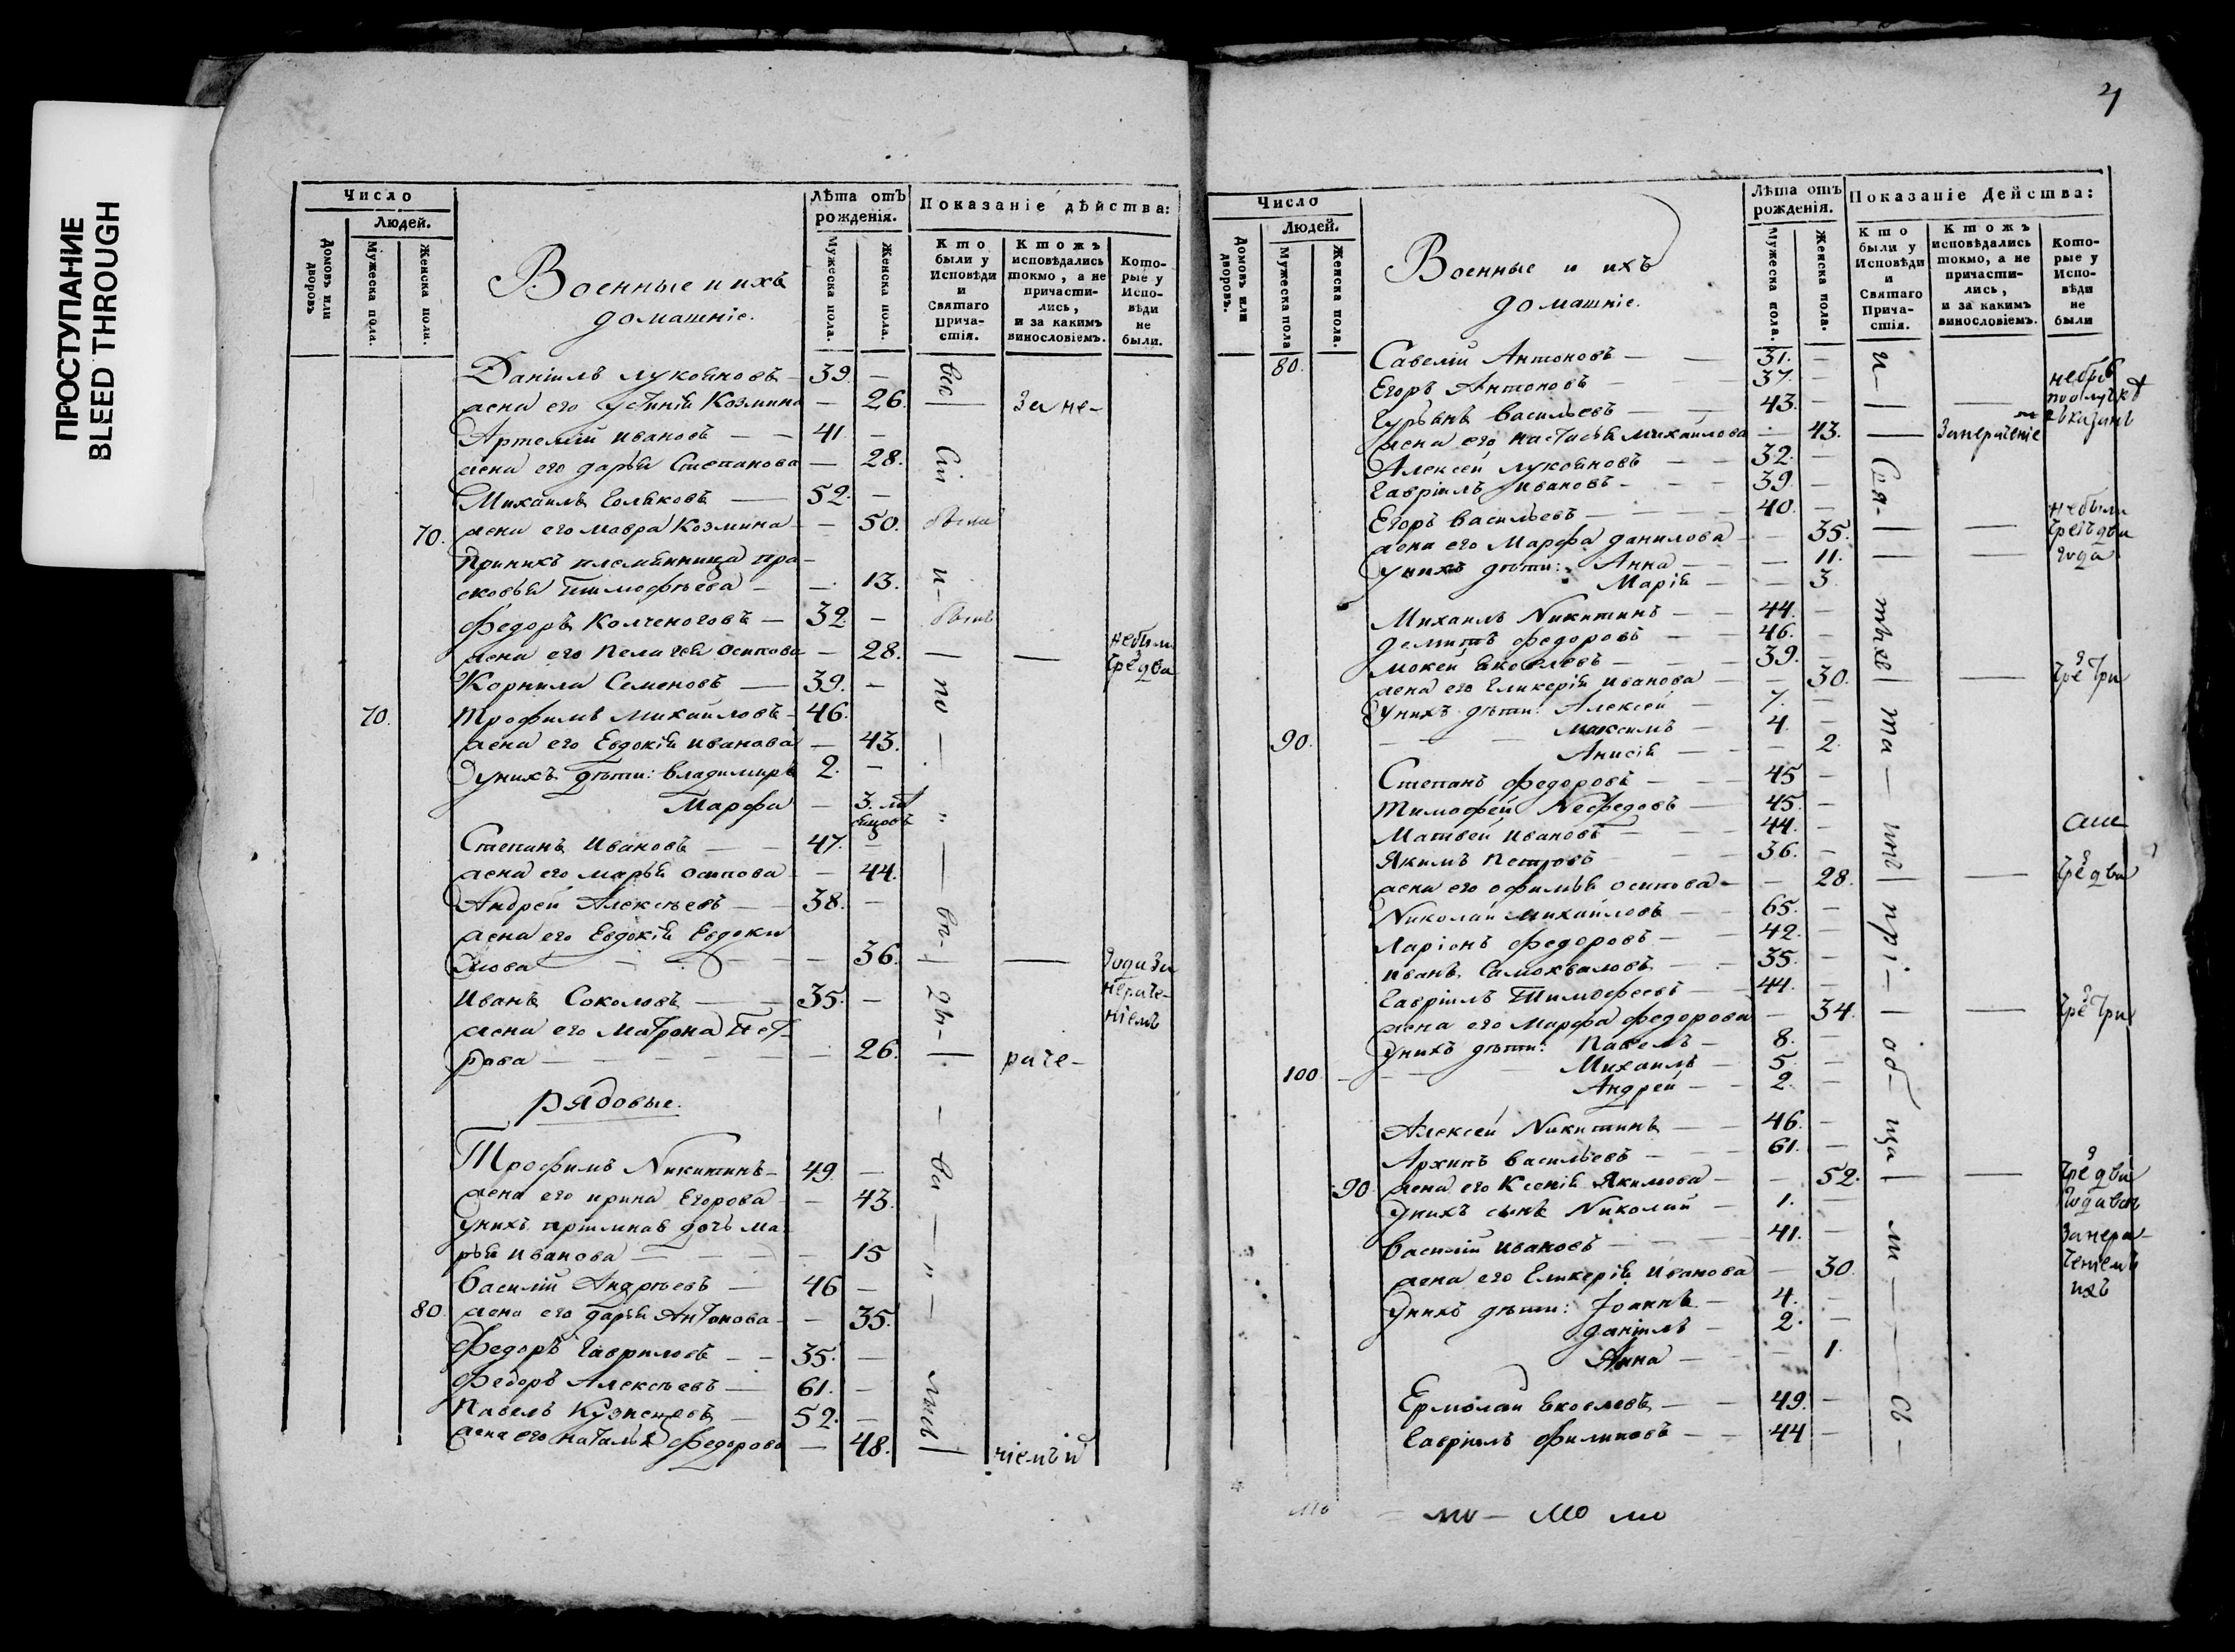 ПРОСТУПАНИЕ
BLEED THROUGH
Число
Людей.
Домовъ или дворовъ
Мужеска пола.
Женска поли.
Военные и ихъ
домашніе.
Лѣта отъ
рожденія.
Мужеска пола.
Женска пола.
Показаніе дѣйства:
Кто
были у
Исповѣди
и
Святаго
Прича-
стія.
Ктожъ
исповѣдались
токмо, а не
причасти-
лись,
и за какимъ
винословіемъ.
Кото-
рые у
Испо-
вѣди
не
были.
Даніилъ Лукояновъ — 39. —
жена его Устинія Козмина — 26. — За не-
Артемій Ивановъ — 41 —
жена его Дарья Степанова — 28.
Михаилъ Ельковъ — 52. —
70. жена его Мавра Козмина — 50.
При нихъ племянница Пра-
сковья Тимофѣева — — 13.
Федоръ Колченоговъ — 32. —
жена его Пелагея Осипова — 28. — — небыли
Корнила Семеновъ — 39. —
70. Трофимъ Михаиловъ — 46.
жена его Евдокія Иванова — 43.
У нихъ дѣти: Владимиръ 2. —
Марфа — 3.
Степанъ Ивановъ — 47. —
жена его Марья Осипова — 44.
Андрей Алексѣевъ — 38. —
жена его Евдокія Евдоки
мова — — 36. — — года за
Иванъ Соколовъ — 35. — нераче-
жена его Матрона Пет- ніемъ
рова — — 26. — раче-
Рядовые.
Трофимъ Никитинъ — 49 —
жена его Ирина Егорова — 43.
У нихъ дочь Ма-
рья Иванова — — 15
Василій Андрѣевъ — 46 —
80. жена его Дарья Антонова — 35.
Федоръ Гавриловъ — 35. —
Федоръ Алексѣевъ — 61. —
Павелъ Кузнецовъ — 52. —
жена его Наталья Федорова — 48. — ніемъ
4
Число
Людей.
Домовъ или дворовъ.
Мужеска пола
Женска пола.
Военные и ихъ
домашніе.
Лѣта отъ
рожденія.
Мужеска пола.
Женска пола.
Показаніе Дейсшва:
Кто
были у
Исповѣди
и
Святаго
Прича-
стія.
Ктожъ
исповѣдались
токмо, а не
причасти-
лись,
и за какимъ
винословіемъ.
Кото-
рые у
Испо-
вѣди
не
были
80. Савелій Антоновъ — 31. —
Егоръ Антоновъ — 37. —
Гурьянъ Васильевъ — 43. —
жена его Настасья Михаилова — 43.
Алексей Лукояновъ — 32. —
Гавріилъ Ивановъ — 39. —
Егоръ Васильевъ — 40. — небыли
жена его Марфа Данилова — 35.
У нихъ дѣти: Анна — — 11. года
Марія — — 3.
Михаилъ Никитинъ — 44. —
Федоровъ — 46. —
Мокей Яковлевъ — 39. —
жена его Гликерія Иванова — 30.
У нихъ дѣти: Алексей — 7. —
Максимъ — 4. —
90. Анисія — — 2.
Степанъ Федоровъ — 45 —
Тимофей Нефедовъ — 45. —
Матвей Ивановъ — 44. —
Якимъ Петровъ — 36. —
жена его Офимья Осипова — 28.
Николай Михаиловъ — 65. —
Ларіонъ Федоровъ — 42. —
Иванъ Самохваловъ — 35. —
Гавріилъ Тимофеевъ — 44. —
жена его Марфа Федорова — 34.
У нихъ дѣти: Павелъ — 8. —
100. Михаилъ — 5. —
Андрей — 2. —
Алексей Никитинъ — 46. —
Архипъ Васильевъ — 61. —
90. жена его Ксенія Якимова — 52.
У нихъ сынъ Николай — 1. —
Василій Ивановъ — 41. — за нера-
жена его Гликерія Иванова — 30. ченіемъ
У нихъ дѣти: Іоаннъ — 4. — ихъ
Даніилъ — 2. —
Анна — — 1.
Ермолай Яковлевъ — 49. —
Гавріилъ Филиповъ — 44 —